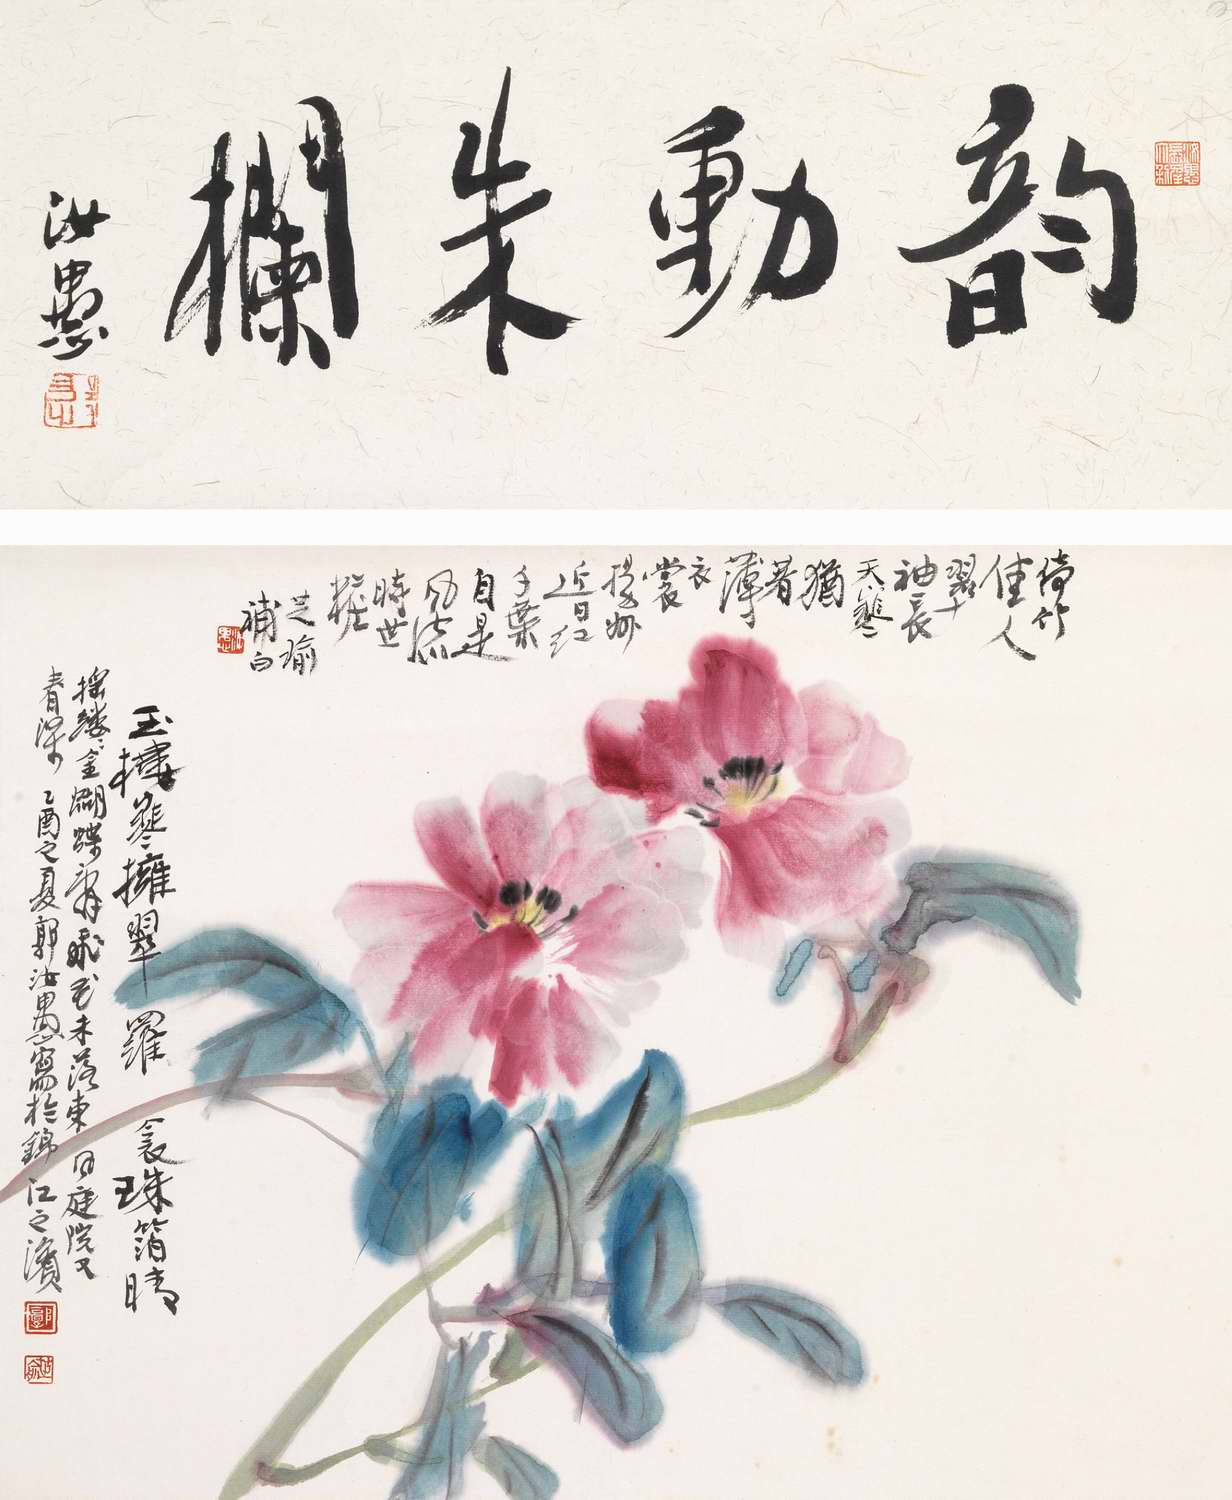 韵動朱欄
汝愚
倚竹
佳人
翠
袖長
天寒
猶
著
薄
衣
裳
揚州
近日紅
千葉
自是
風流
時世
粧
芝瑜
補白
玉樓寒擁翠羅衾珠箔晴
搖縷金蝴蝶飛花未落東風庭院又
春深 乙酉之夏郭汝愚寫於錦江之濱